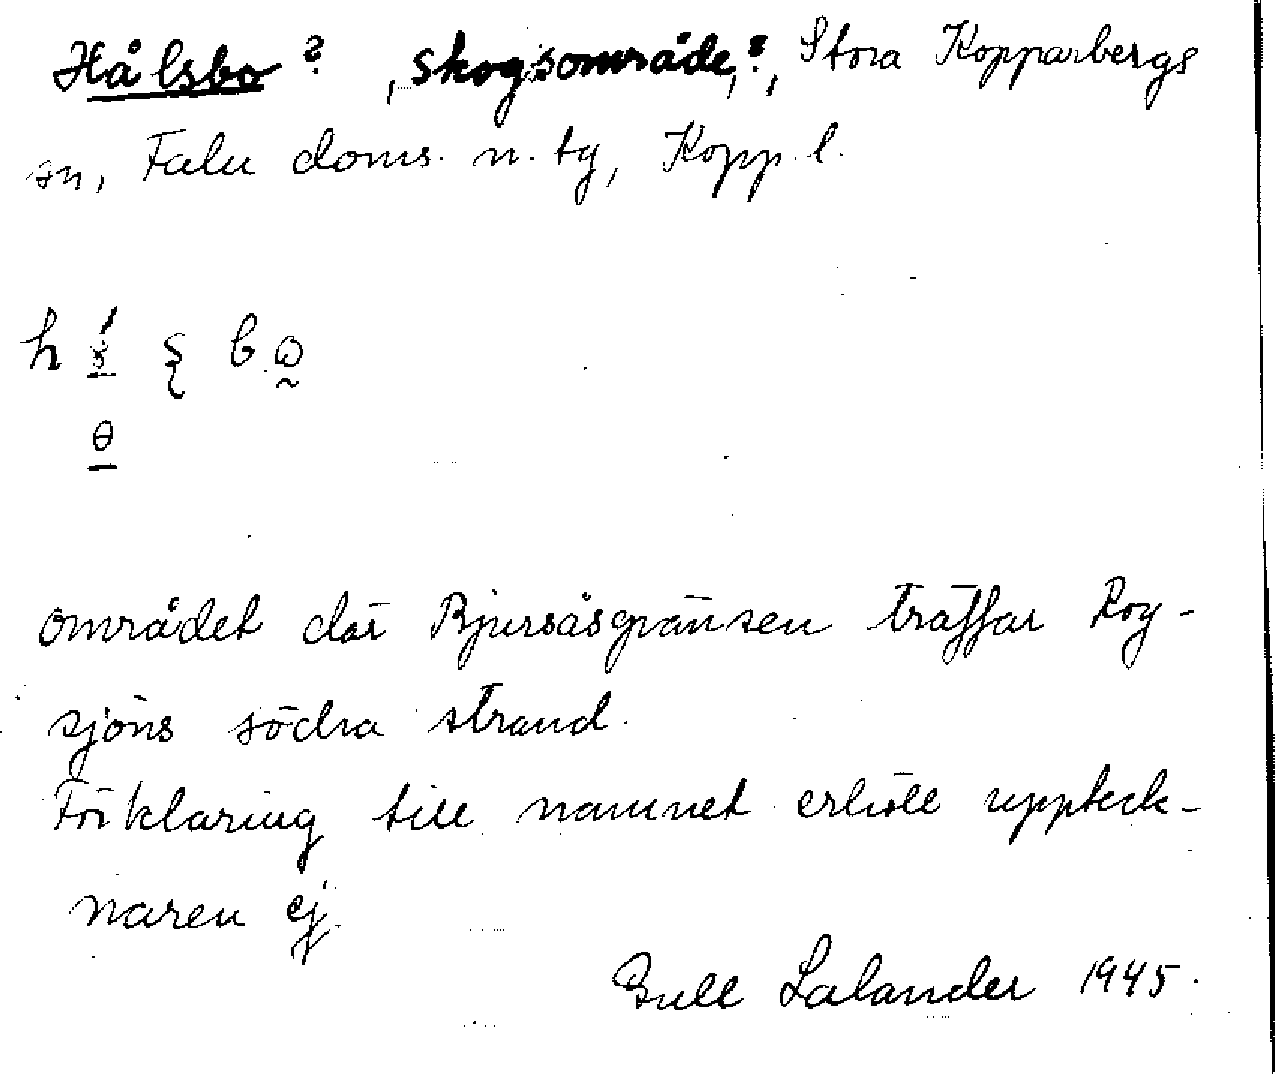 Hålsbo? , skogsområde,?, Stora Kopparbergs
sn, Falu doms. n. tg, Kopp. l.
området där Bjursåsgränsen träffar Rog-
sjöns södra strand.
Förklaring till namnet erhöll uppteck-
naren ej.
Gull Lalander 1945.